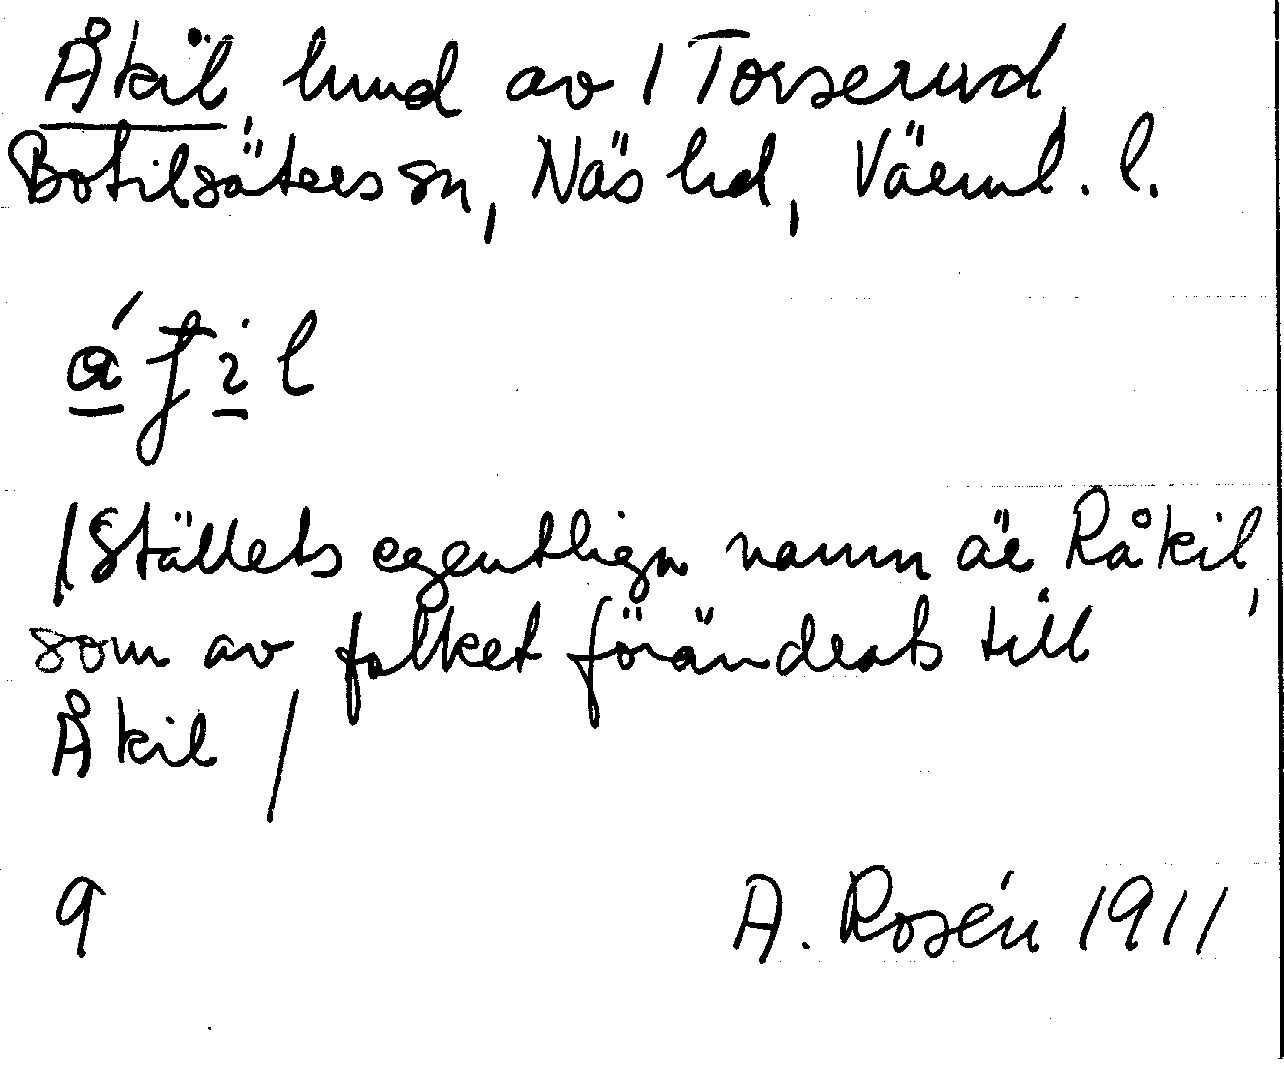 Åkil, hmd av 1 Torserud,
Botilsäters sn, Näs hd, Värml. l.
/Ställets egentliga namn är Råkil,
som av folket förändrats till
Åkil /
9 A. Rosén 1911